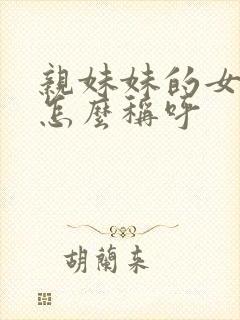 親妹妹的女
怎麼稱呼
胡蘭来